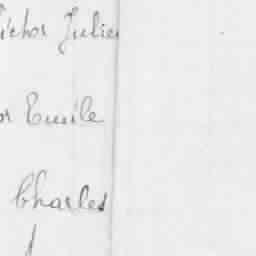 Victor Julien
or Emile
Charles